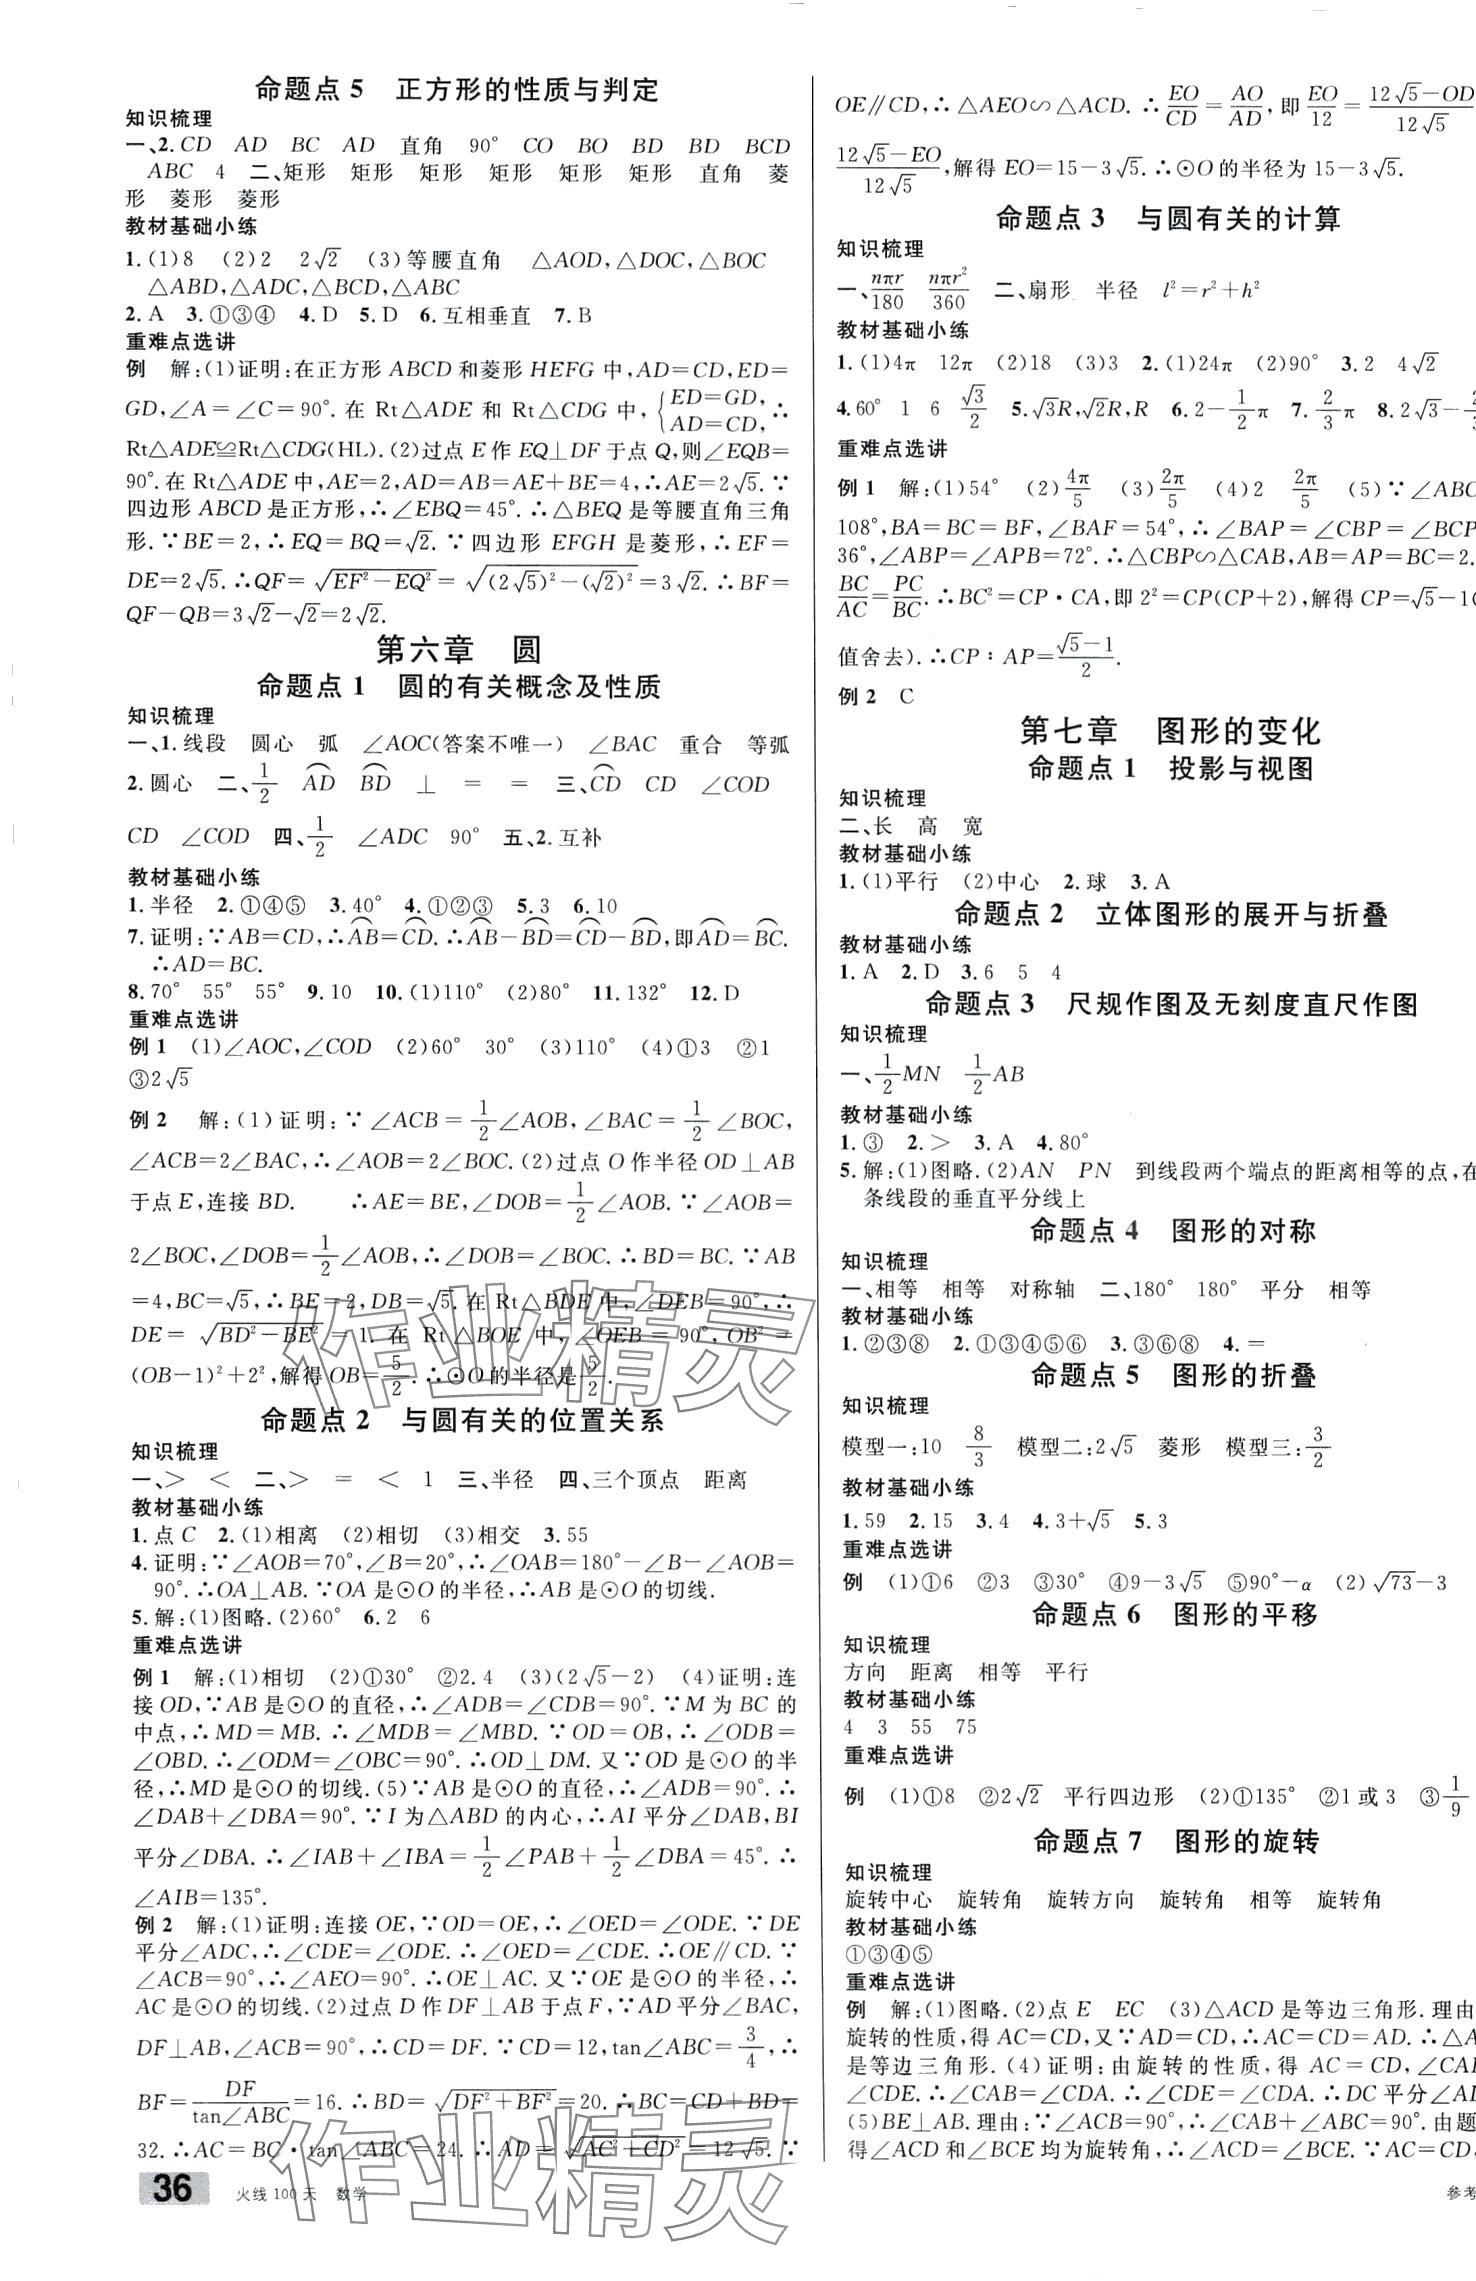 命题点 5　正方形的性质与判定
知识梳理
一、2. CD　AD　BC　AD　直角　90°　CO　BO　BD　BD　BCD
ABC　4　二、矩形　矩形　矩形　矩形　矩形　矩形　直角　菱
形　菱形　菱形
教材基础小练
1. (1)8　(2)2　2√2　(3)等腰直角　△AOD,△DOC,△BOC
△ABD,△ADC,△BCD,△ABC
2. A　3. ①③④　4. D　5. D　6. 互相垂直　7. B
重难点选讲
例　解:(1)证明:在正方形 ABCD 和菱形 HEFG 中,AD=CD,ED=
GD,∠A=∠C=90°. 在 Rt△ADE 和 Rt△CDG 中,{ED=GD, AD=CD, ∴
Rt△ADE≌Rt△CDG(HL). (2)过点 E 作 EQ⊥DF 于点 Q,则∠EQB=
90°. 在 Rt△ADE 中,AE=2,AD=AB=AE+BE=4,∴AE=2√5. ∵
四边形 ABCD 是正方形,∴∠EBQ=45°. ∴△BEQ 是等腰直角三角
形. ∵BE=2,∴EQ=BQ=√2. ∵四边形 EFGH 是菱形,∴EF=
DE=2√5. ∴QF=√(EF²-EQ²)=√((2√5)²-(√2)²)=3√2. ∴BF=
QF-QB=3√2-√2=2√2.
第六章　圆
命题点 1　圆的有关概念及性质
知识梳理
一、1. 线段　圆心　弧　∠AOC(答案不唯一)　∠BAC　重合　等弧
2. 圆心　二、1/2　AD⌒　BD⌒　⊥　=　=　三、CD⌒　CD　∠COD
CD　∠COD　四、1/2　∠ADC　90°　五、2. 互补
教材基础小练
1. 半径　2. ①④⑤　3. 40°　4. ①②③　5. 3　6. 10
7. 证明:∵AB=CD,∴AB⌒=CD⌒. ∴AB⌒-BD⌒=CD⌒-BD⌒,即AD⌒=BC⌒.
∴AD=BC.
8. 70°　55°　55°　9. 10　10. (1)110°　(2)80°　11. 132°　12. D
重难点选讲
例 1　(1)∠AOC,∠COD　(2)60°　30°　(3)110°　(4)①3　②1
③2√5
例 2　解:(1)证明:∵∠ACB=1/2∠AOB,∠BAC=1/2∠BOC,
∠ACB=2∠BAC,∴∠AOB=2∠BOC. (2)过点 O 作半径 OD⊥AB
于点 E,连接 BD.　∴AE=BE,∠DOB=1/2∠AOB. ∵∠AOB=
2∠BOC,∠DOB=1/2∠AOB,∴∠DOB=∠BOC. ∴BD=BC. ∵AB
=4,BC=√5,∴BE=2,DB=√5. 在 Rt△BDE 中,∠DEB=90°,∴
DE=√(BD²-BE²)=1. 在 Rt△BOE 中,∠OEB=90°,OB²=
(OB-1)²+2²,解得 OB=5/2. ∴⊙O 的半径是5/2.
命题点 2　与圆有关的位置关系
知识梳理
一、>　<　二、>　=　<　1　三、半径　四、三个顶点　距离
教材基础小练
1. 点 C　2. (1)相离　(2)相切　(3)相交　3. 55
4. 证明:∵∠AOB=70°,∠B=20°,∴∠OAB=180°-∠B-∠AOB=
90°. ∴OA⊥AB. ∵OA 是⊙O 的半径,∴AB 是⊙O 的切线.
5. 解:(1)图略. (2)60°　6. 2　6
重难点选讲
例 1　解:(1)相切　(2)①30°　②2.4　(3)(2√5-2)　(4)证明:连
接 OD,∵AB 是⊙O 的直径,∴∠ADB=∠CDB=90°. ∵M 为 BC 的
中点,∴MD=MB. ∴∠MDB=∠MBD. ∵OD=OB,∴∠ODB=
∠OBD. ∴∠ODM=∠OBC=90°. ∴OD⊥DM. 又∵OD 是⊙O 的半
径,∴MD 是⊙O 的切线. (5)∵AB 是⊙O 的直径,∴∠ADB=90°. ∴
∠DAB+∠DBA=90°. ∵I 为△ABD 的内心,∴AI 平分∠DAB,BI
平分∠DBA. ∴∠IAB+∠IBA=1/2∠PAB+1/2∠DBA=45°. ∴
∠AIB=135°.
例 2　解:(1)证明:连接 OE,∵OD=OE,∴∠OED=∠ODE. ∵DE
平分∠ADC,∴∠CDE=∠ODE. ∴∠OED=∠CDE. ∴OE∥CD. ∵
∠ACB=90°,∴∠AEO=90°. ∴OE⊥AC. 又∵OE 是⊙O 的半径,∴
AC 是⊙O 的切线. (2)过点 D 作 DF⊥AB 于点 F,∵AD 平分∠BAC,
DF⊥AB,∠ACB=90°,∴CD=DF. ∵CD=12,tan∠ABC=3/4,∴
BF=DF/tan∠ABC=16. ∴BD=√(DF²+BF²)=20. ∴BC=CD+BD=
32. ∴AC=BC·tan∠ABC=24. ∴AD=√(AC²+CD²)=12√5. ∵
36　火线 100 天　数学
OE∥CD,∴△AEO∽△ACD. ∴EO/CD=AO/AD,即EO/12=(12√5-OD)/(12√5)
(12√5-EO)/(12√5),解得 EO=15-3√5. ∴⊙O 的半径为 15-3√5.
命题点 3　与圆有关的计算
知识梳理
一、nπr/180　nπr²/360　二、扇形　半径　l²=r²+h²
教材基础小练
1. (1)4π　12π　(2)18　(3)3　2. (1)24π　(2)90°　3. 2　4√2
4. 60°　1　6　√3/2　5. √3R,√2R,R　6. 2-1/2π　7. 2/3π　8. 2√3-
重难点选讲
例 1　解:(1)54°　(2)4π/5　(3)2π/5　(4)2　2π/5　(5)∵∠ABC
108°,BA=BC=BF,∠BAF=54°,∴∠BAP=∠CBP=∠BCP
36°,∠ABP=∠APB=72°. ∴△CBP∽△CAB,AB=AP=BC=2.
BC/AC=PC/BC. ∴BC²=CP·CA,即 2²=CP(CP+2),解得 CP=√5-1(
值舍去). ∴CP∶AP=(√5-1)/2.
例 2　C
第七章　图形的变化
命题点 1　投影与视图
知识梳理
二、长　高　宽
教材基础小练
1. (1)平行　(2)中心　2. 球　3. A
命题点 2　立体图形的展开与折叠
教材基础小练
1. A　2. D　3. 6　5　4
命题点 3　尺规作图及无刻度直尺作图
知识梳理
一、1/2MN　1/2AB
教材基础小练
1. ③　2. >　3. A　4. 80°
5. 解:(1)图略. (2)AN　PN　到线段两个端点的距离相等的点,在
条线段的垂直平分线上
命题点 4　图形的对称
知识梳理
一、相等　相等　对称轴　二、180°　180°　平分　相等
教材基础小练
1. ②③⑧　2. ①③④⑤⑥　3. ③⑥⑧　4. =
命题点 5　图形的折叠
知识梳理
模型一:10　8/3　模型二:2√5　菱形　模型三:3/2
教材基础小练
1. 59　2. 15　3. 4　4. 3+√5　5. 3
重难点选讲
例　(1)①6　②3　③30°　④9-3√5　⑤90°-α　(2)√73-3
命题点 6　图形的平移
知识梳理
方向　距离　相等　平行
教材基础小练
4　3　55　75
重难点选讲
例　(1)①8　②2√2　平行四边形　(2)①135°　②1或3　③1/9
命题点 7　图形的旋转
知识梳理
旋转中心　旋转角　旋转方向　旋转角　相等　旋转角
教材基础小练
①③④⑤
重难点选讲
例　解:(1)图略. (2)点 E　EC　(3)△ACD 是等边三角形. 理由
旋转的性质,得 AC=CD,又∵AD=CD,∴AC=CD=AD. ∴△A
是等边三角形. (4)证明:由旋转的性质,得 AC=CD,∠CAB
∠CDE. ∴∠CAB=∠CDA. ∴∠CDE=∠CDA. ∴DC 平分∠AD
(5)BE⊥AB. 理由:∵∠ACB=90°,∴∠CAB+∠ABC=90°. 由题
得∠ACD 和∠BCE 均为旋转角,∴∠ACD=∠BCE. ∵AC=CD,
参考
作业精灵
作业精灵